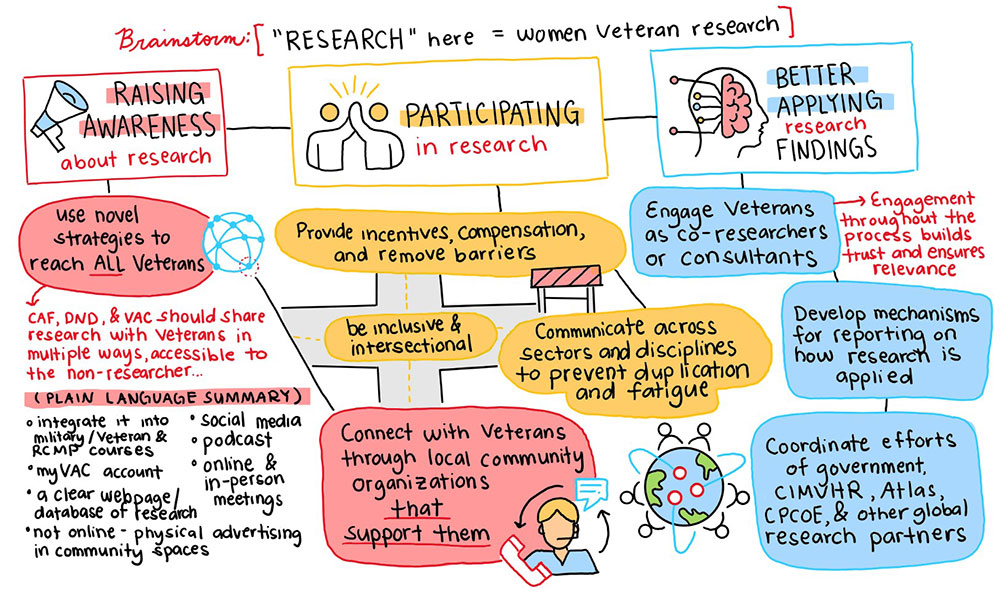 Brainstorm: ["RESEARCH" here = women veteran research]
RAISING
AWARENESS
about research
PARTICIPATING
in research
BETTER
APPLYING
research
FINDINGS
use novel
strategies to
reach ALL Veterans
CAF, DND, & VAC should share
research with Veterans in
multiple ways, accessible to
the non-researcher...
(PLAIN LANGUAGE SUMMARY)
• integrate it into
military/Veteran &
RCMP courses
• myVAC account
• a clear webpage/
database of research
• not online - physical advertising
in community spaces
• social media
• podcast
• online &
in-person
meetings
Connect with Veterans
through local community
organizations
that
support them
Provide incentives, compensation,
and remove barriers
be inclusive &
intersectional
Communicate across
sectors and disciplines
to prevent duplication
and fatigue
Engage Veterans
as co-researchers
or consultants
→ Engagement
throughout the
process builds
trust and ensures
relevance
Develop mechanisms
for reporting on
how research is
applied
Coordinate efforts
of government,
CIMVHR, Atlas,
CPCOE, & other global
research partners